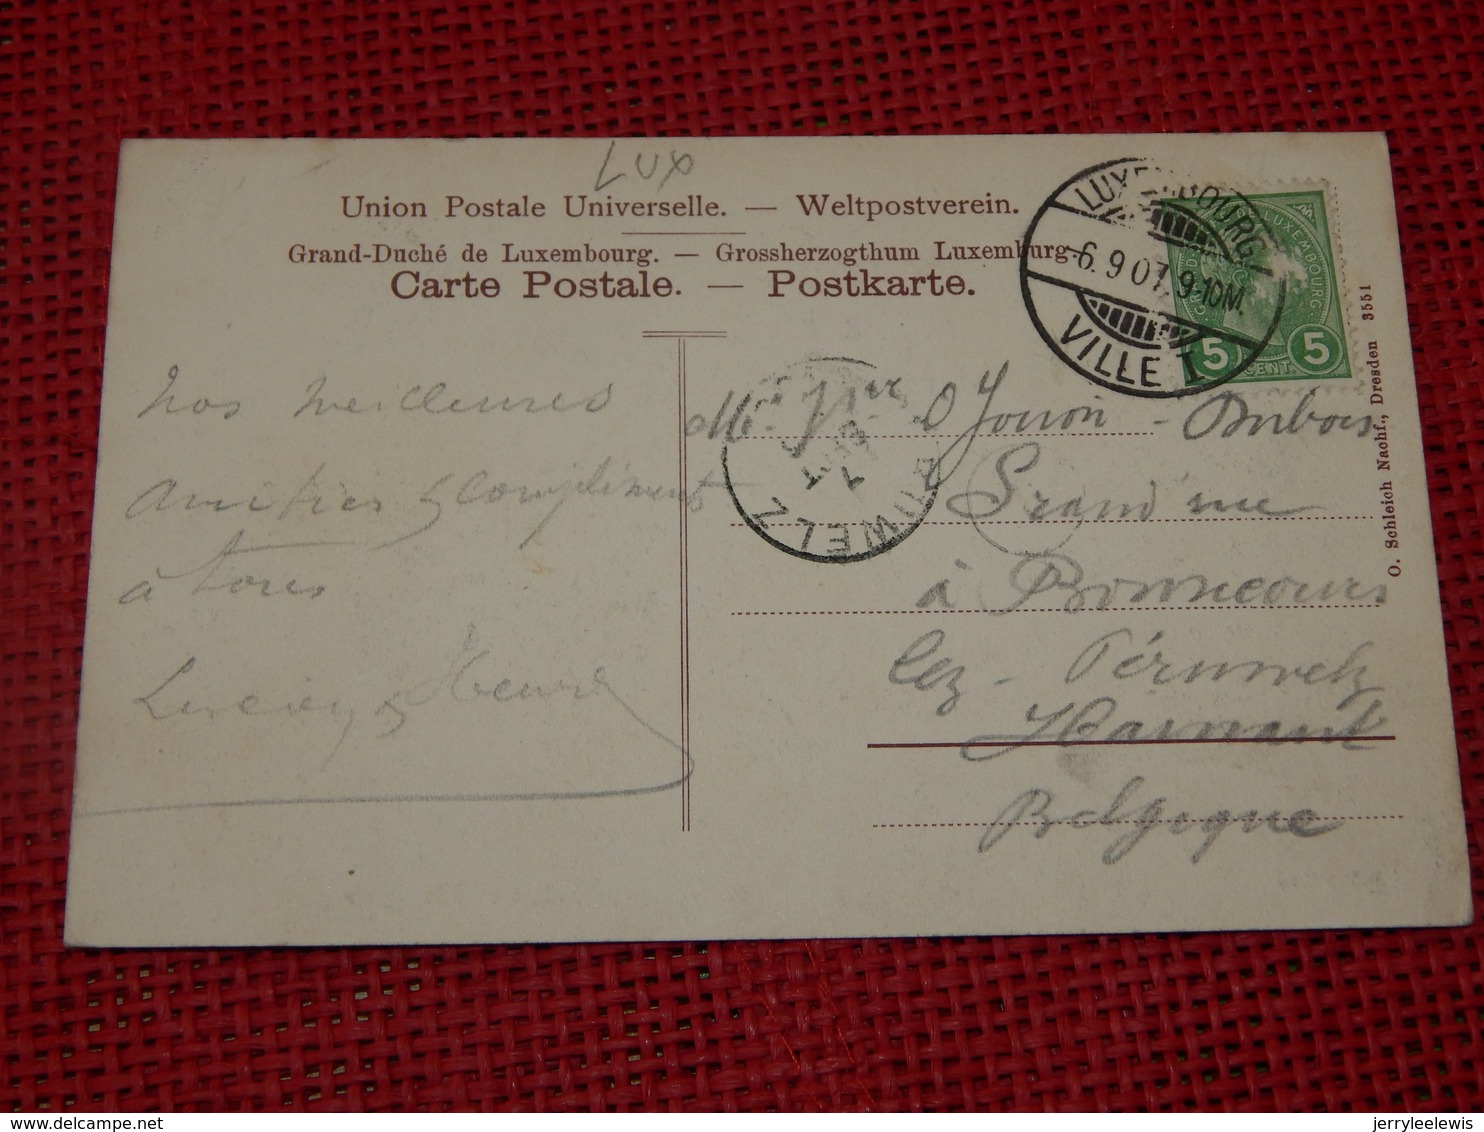 Lux
Union Postale Universelle. — Weltpostverein.
Grand-Duché de Luxembourg. — Grossherzogthum Luxemburg.
Carte Postale. — Postkarte.
LUXEMBOURG
-6.9.07. 9-10M.
VILLE 1
LUXEMBOURG
5 CENT. 5
Nos meilleures
amitiés & compliments
à tous
Lucien & Henri
RUWELZ
Dubois
Grand'rue
à Bonsecours
lez - Péruwelz
Hainaut
Belgique
O. Schleich Nachf., Dresden 3551
jerryleelewis